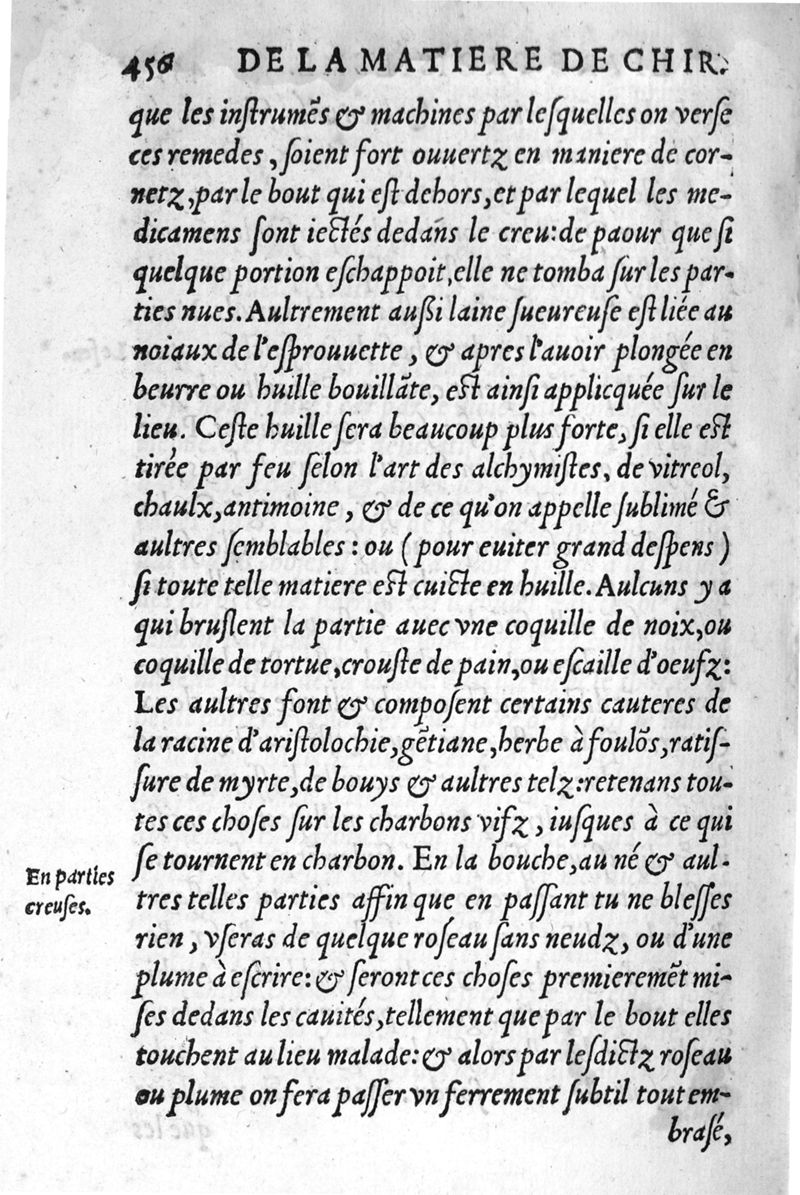 456 DE LA MATIERE DE CHIR.
que les inſtrumẽs & machines par leſquelles on verſe
ces remedes, ſoient fort ouuertz en maniere de cor-
netz, par le bout qui eſt dehors, et par lequel les me-
dicamens ſont iectés dedans le creu: de paour que ſi
quelque portion eſchappoit, elle ne tomba ſur les par-
ties nues. Aultrement auſsi laine ſueureuſe eſt liée au
noiaux de l'eſprouuette, & apres l'auoir plongée en
beurre ou huille bouillãte, eſt ainſi applicquée ſur le
lieu. Ceſte huille ſera beaucoup plus forte, ſi elle eſt
tirée par feu ſelon l'art des alchymiſtes, de vitreol,
chaulx, antimoine, & de ce qu'on appelle ſublimé &
aultres ſemblables: ou (pour euiter grand deſpens)
ſi toute telle matiere eſt cuicte en huille. Aulcuns y a
qui bruſlent la partie auec vne coquille de noix, ou
coquille de tortue, crouſte de pain, ou eſcaille d'oeufz:
Les aultres font & compoſent certains cauteres de
la racine d'ariſtolochie, gẽtiane, herbe à foulõs, ratiſ-
ſure de myrte, de bouys & aultres telz: retenans tou-
tes ces choſes ſur les charbons vifz, iuſques à ce qui
ſe tournent en charbon. En la bouche, au né & aul-
En parties
creuſes.
tres telles parties affin que en paſſant tu ne bleſſes
rien, vſeras de quelque roſeau ſans neudz, ou d'une
plume à eſcrire: & ſeront ces choſes premieremẽt mi-
ſes dedans les cauités, tellement que par le bout elles
touchent au lieu malade: & alors par leſdictz roſeau
ou plume on fera paſſer vn ferrement ſubtil tout em-
braſé,